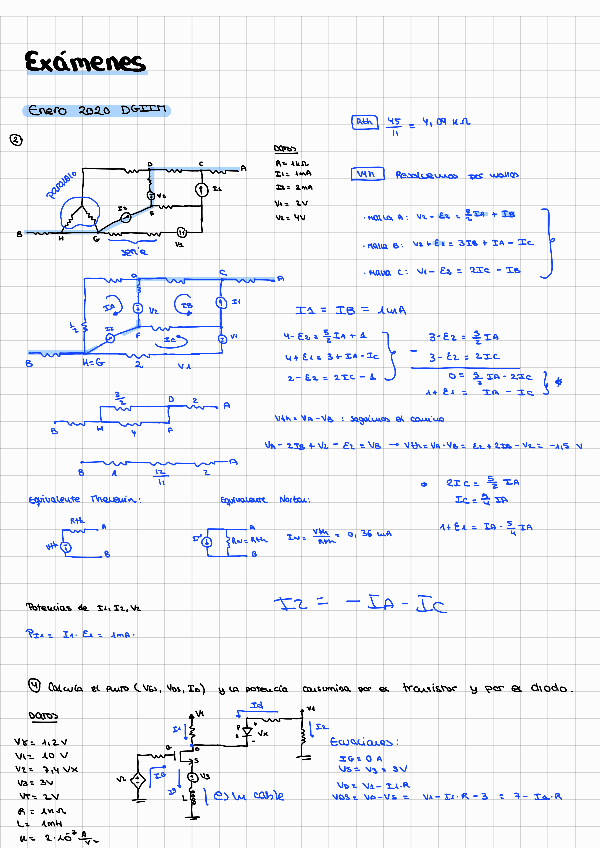 Exámenes
Enero 2020 DGIIM
2
paralelo
B
H
G
D
C
A
F
I1
I2
V2
serie
DATOS
R = 1kΩ
I1 = 1mA
I2 = 2mA
V1 = 2V
V2 = 4V
Rth 45/11 = 4,09 KΩ
Vth Resolvemos por mallas
· malla A: V2 - E2 = 5/2 IA + IB
· malla B: V2 + E2 = 3IB + IA - IC
· malla C: V1 - E2 = 2IC - IB
I1 = IB = 1mA
4 - E2 = 5/2 IA + 1
4 + E1 = 3 + IA - IC
2 - E2 = 2IC - 1
3 - E2 = 5/2 IA
3 - E2 = 2IC
0 = 5/2 IA - 2IC
1 + E1 = IA - IC
C
A
IA
V2
IB
I1
1/2
I2
F
IC
V1
B
H=G
2
V1
3/2
D
2
A
B
H
4
F
B
1
12/11
2
A
Vth = VA - VB : seguimos el camino
VA - 2IB + V2 - E2 = VB → Vth = VA - VB = E2 + 2IB - V2 = -1,5 V
Equivalente Thevenin:
Equivalente Norton:
Rth
A
Vth
B
A
RN = Rth
B
IN = Vth/Rth = 0,36 mA
2IC = 5/2 IA
IC = 5/4 IA
1 + E1 = IA - 5/4 IA
I2 = - IA - IC
Potencias de I1, I2, V2
PI1 = I1 · E1 = 1mA ·
4 Calcula el punto (VGS, VDS, ID) y la potencia consumida por el transistor y por el diodo.
DATOS
Vγ = 1,2 V
V1 = 10 V
V2 = 7,4 Vx
V3 = 3V
VT = 2V
R = 1kΩ
L = 1mH
V1
I1
Id
V1
Vx
I2
G
D
S
IG
V2
V3
L
es un cable
Ecuaciones:
IG = 0 A
VS = V3 = 3V
VD = V1 - I1·R
VDS = VD - VS = V1 - I1·R - 3 = 7 - I1·R